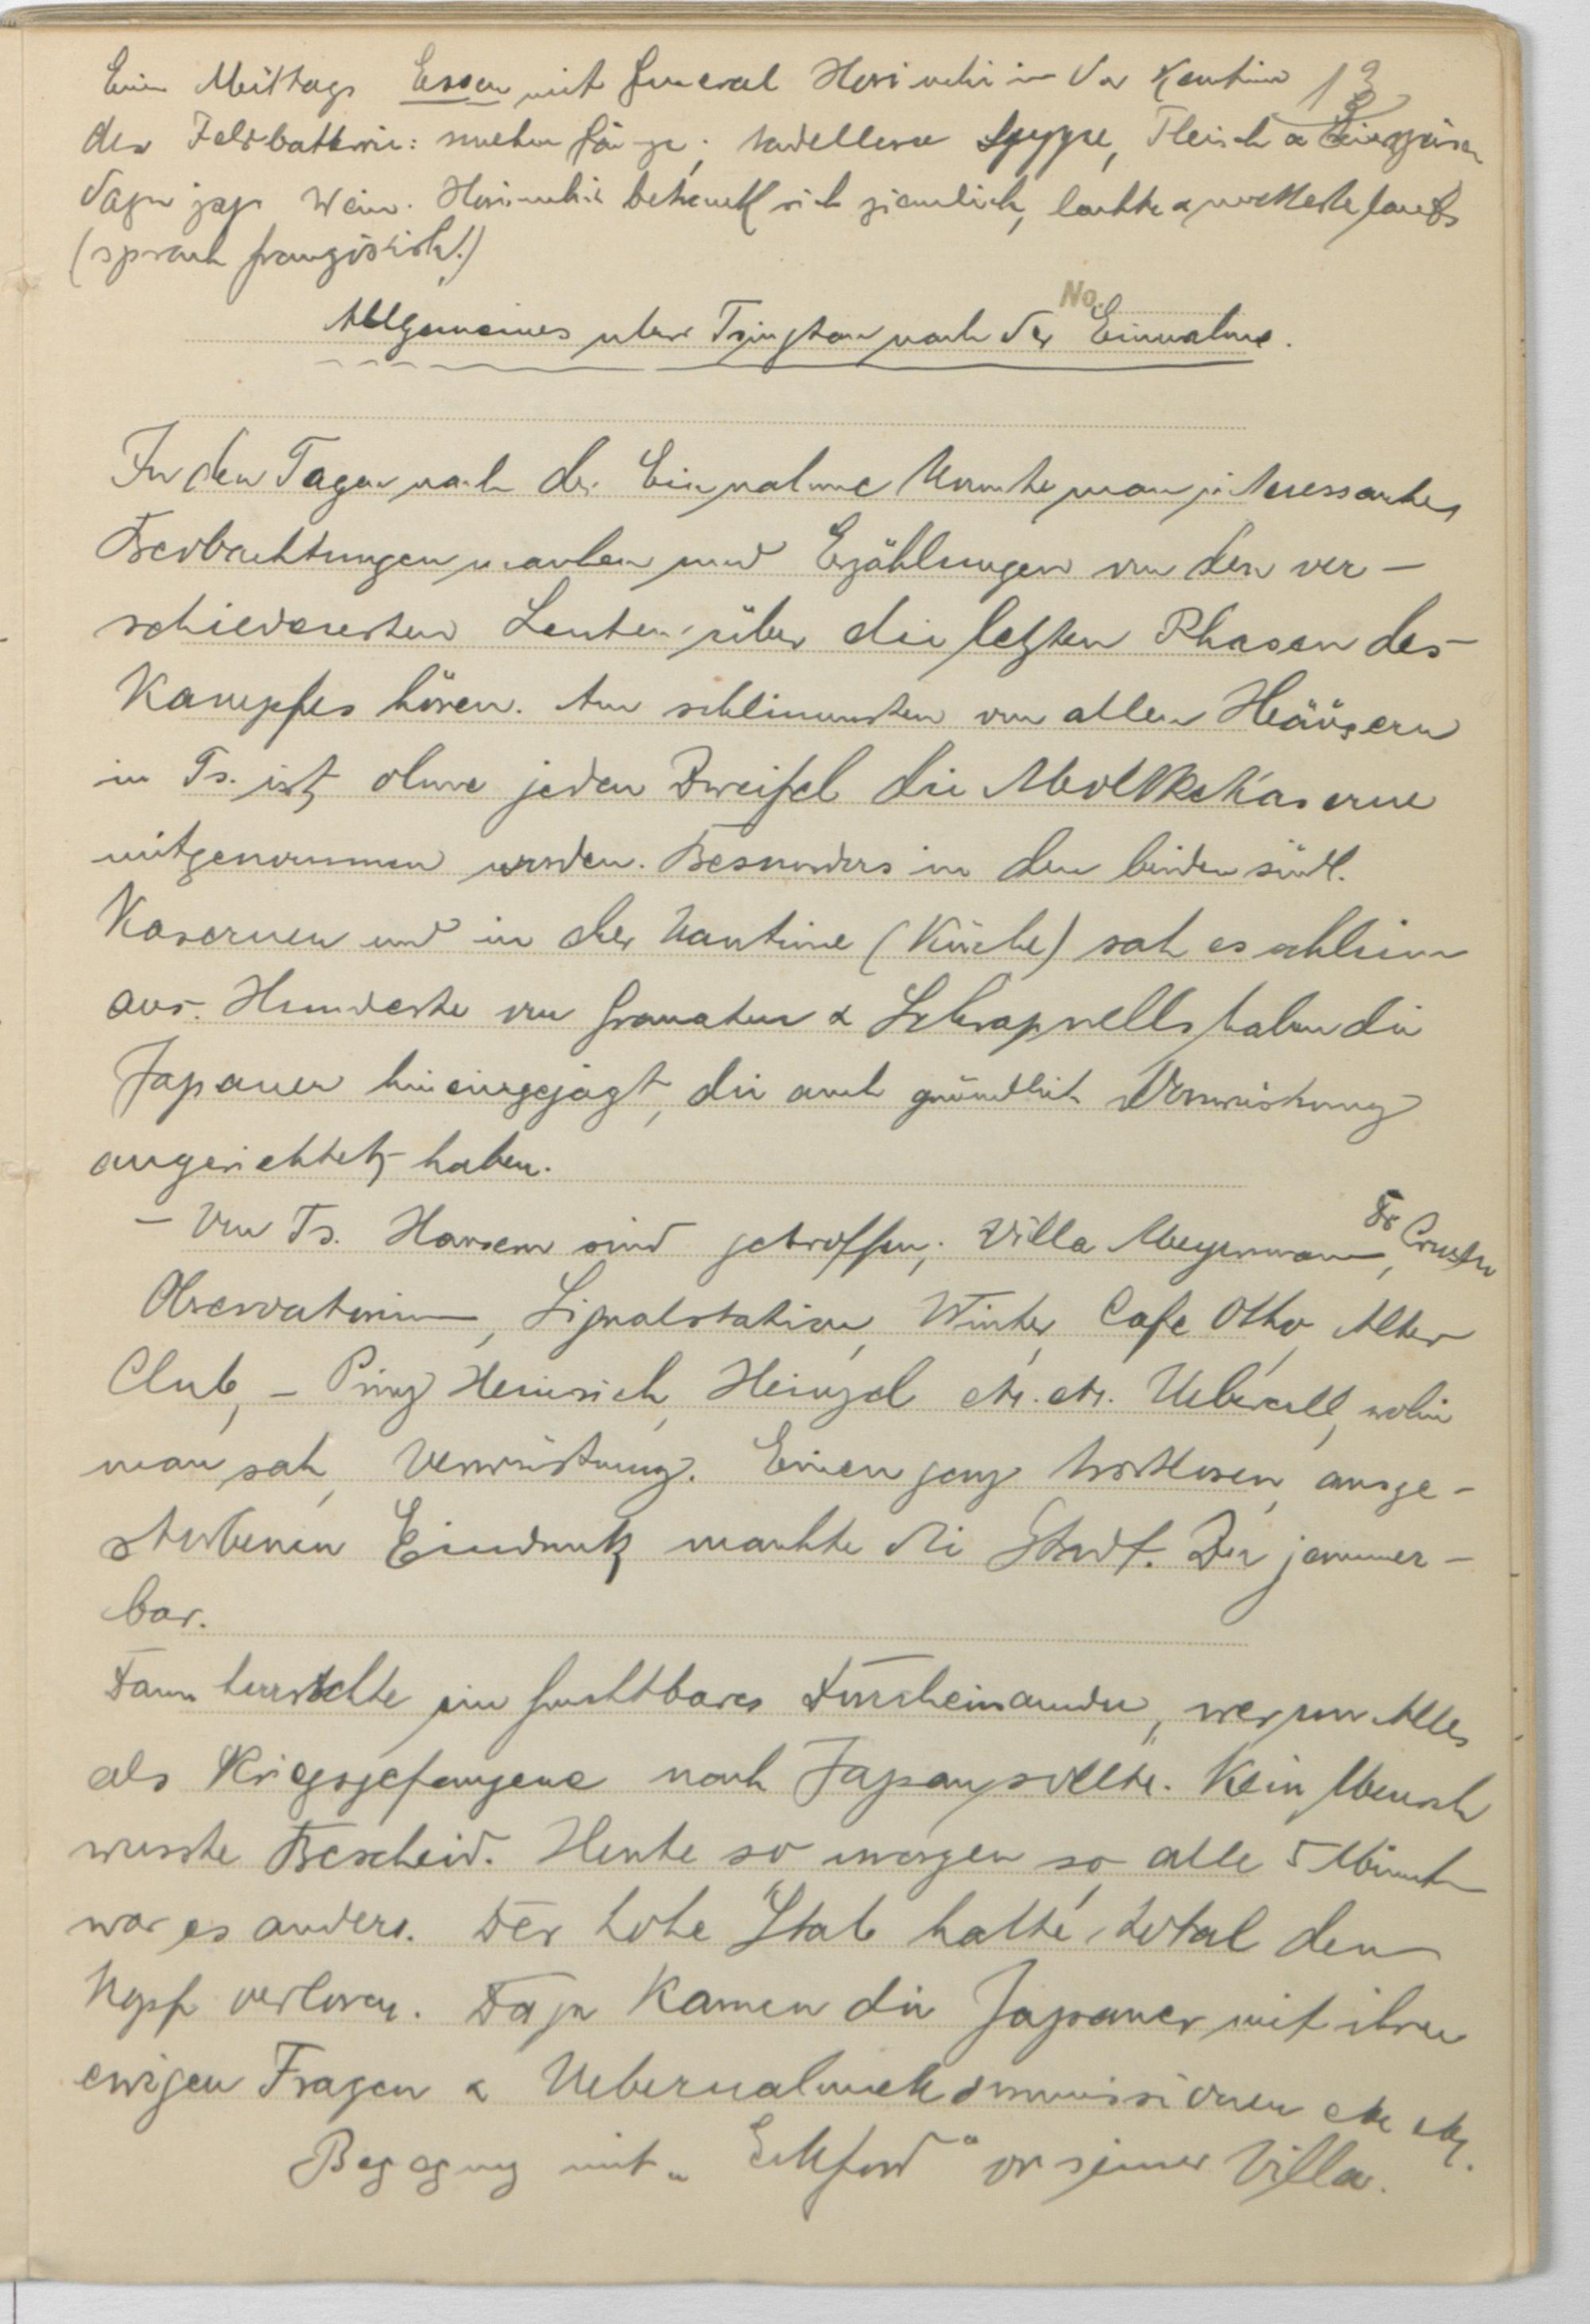 Ein Mittags Essen mit General Horiuchi in der Kantine 13
der Feldbatterie: mehrere Gänge; tadellose Suppe, Fleisch &
dazu jap. Wein. Horiuchi betrank sich ziemlich, lachte &
(sprach französisch!)
No.
Allgemeines über Tsingtau nach der Einnahme.
In den Tagen nach der Einnahme konnte man interessantes
Beobachtungen machen und Erzählungen von den ver-
schiedensten Leuten über die letzten Phasen des
Kampfes hören. Am schlimmsten von allen Häusern
in Ts. ist ohne jeden Zweifel die MoltkeKaserne
mitgenommen worden. Besonders in den beiden südl.
Kasernen und in der Kantine (Küche) sah es schlimm
aus. Hunderte von Granaten & Schrapnells haben die
Japaner hineingejagt, die auch gründlich Verwüstung
angerichtet haben.
- Von Ts. Häusern sind getroffen; Villa Meyermann, Dr Crusen
Observatorium, Signalstation, Winter, Cafe Otto, Alter
Club, - Prinz Heinrich, Heinzel etc. etc. Ueberall, wohin
man sah, Verwüstung. Einen ganz trostlosen, ausge-
storbenen Eindruck machte die Stadt. Der jammer-
bar.
Dann herrschte ein furchtbares Durcheinander, wer nun Alles
als Kriegsgefangene nach Japan sollte. Kein Mensch
wusste Bescheid. Heute so morgen so, alle 5 Minuten
war es anders. Der hohe Stab hatte total den
Kopf verloren. Dazu kamen die Japaner mit ihren
ewigen Fragen & Uebernahmekommissionen etc etc.
Begegnung mit „Eckford" vor seiner Villa.